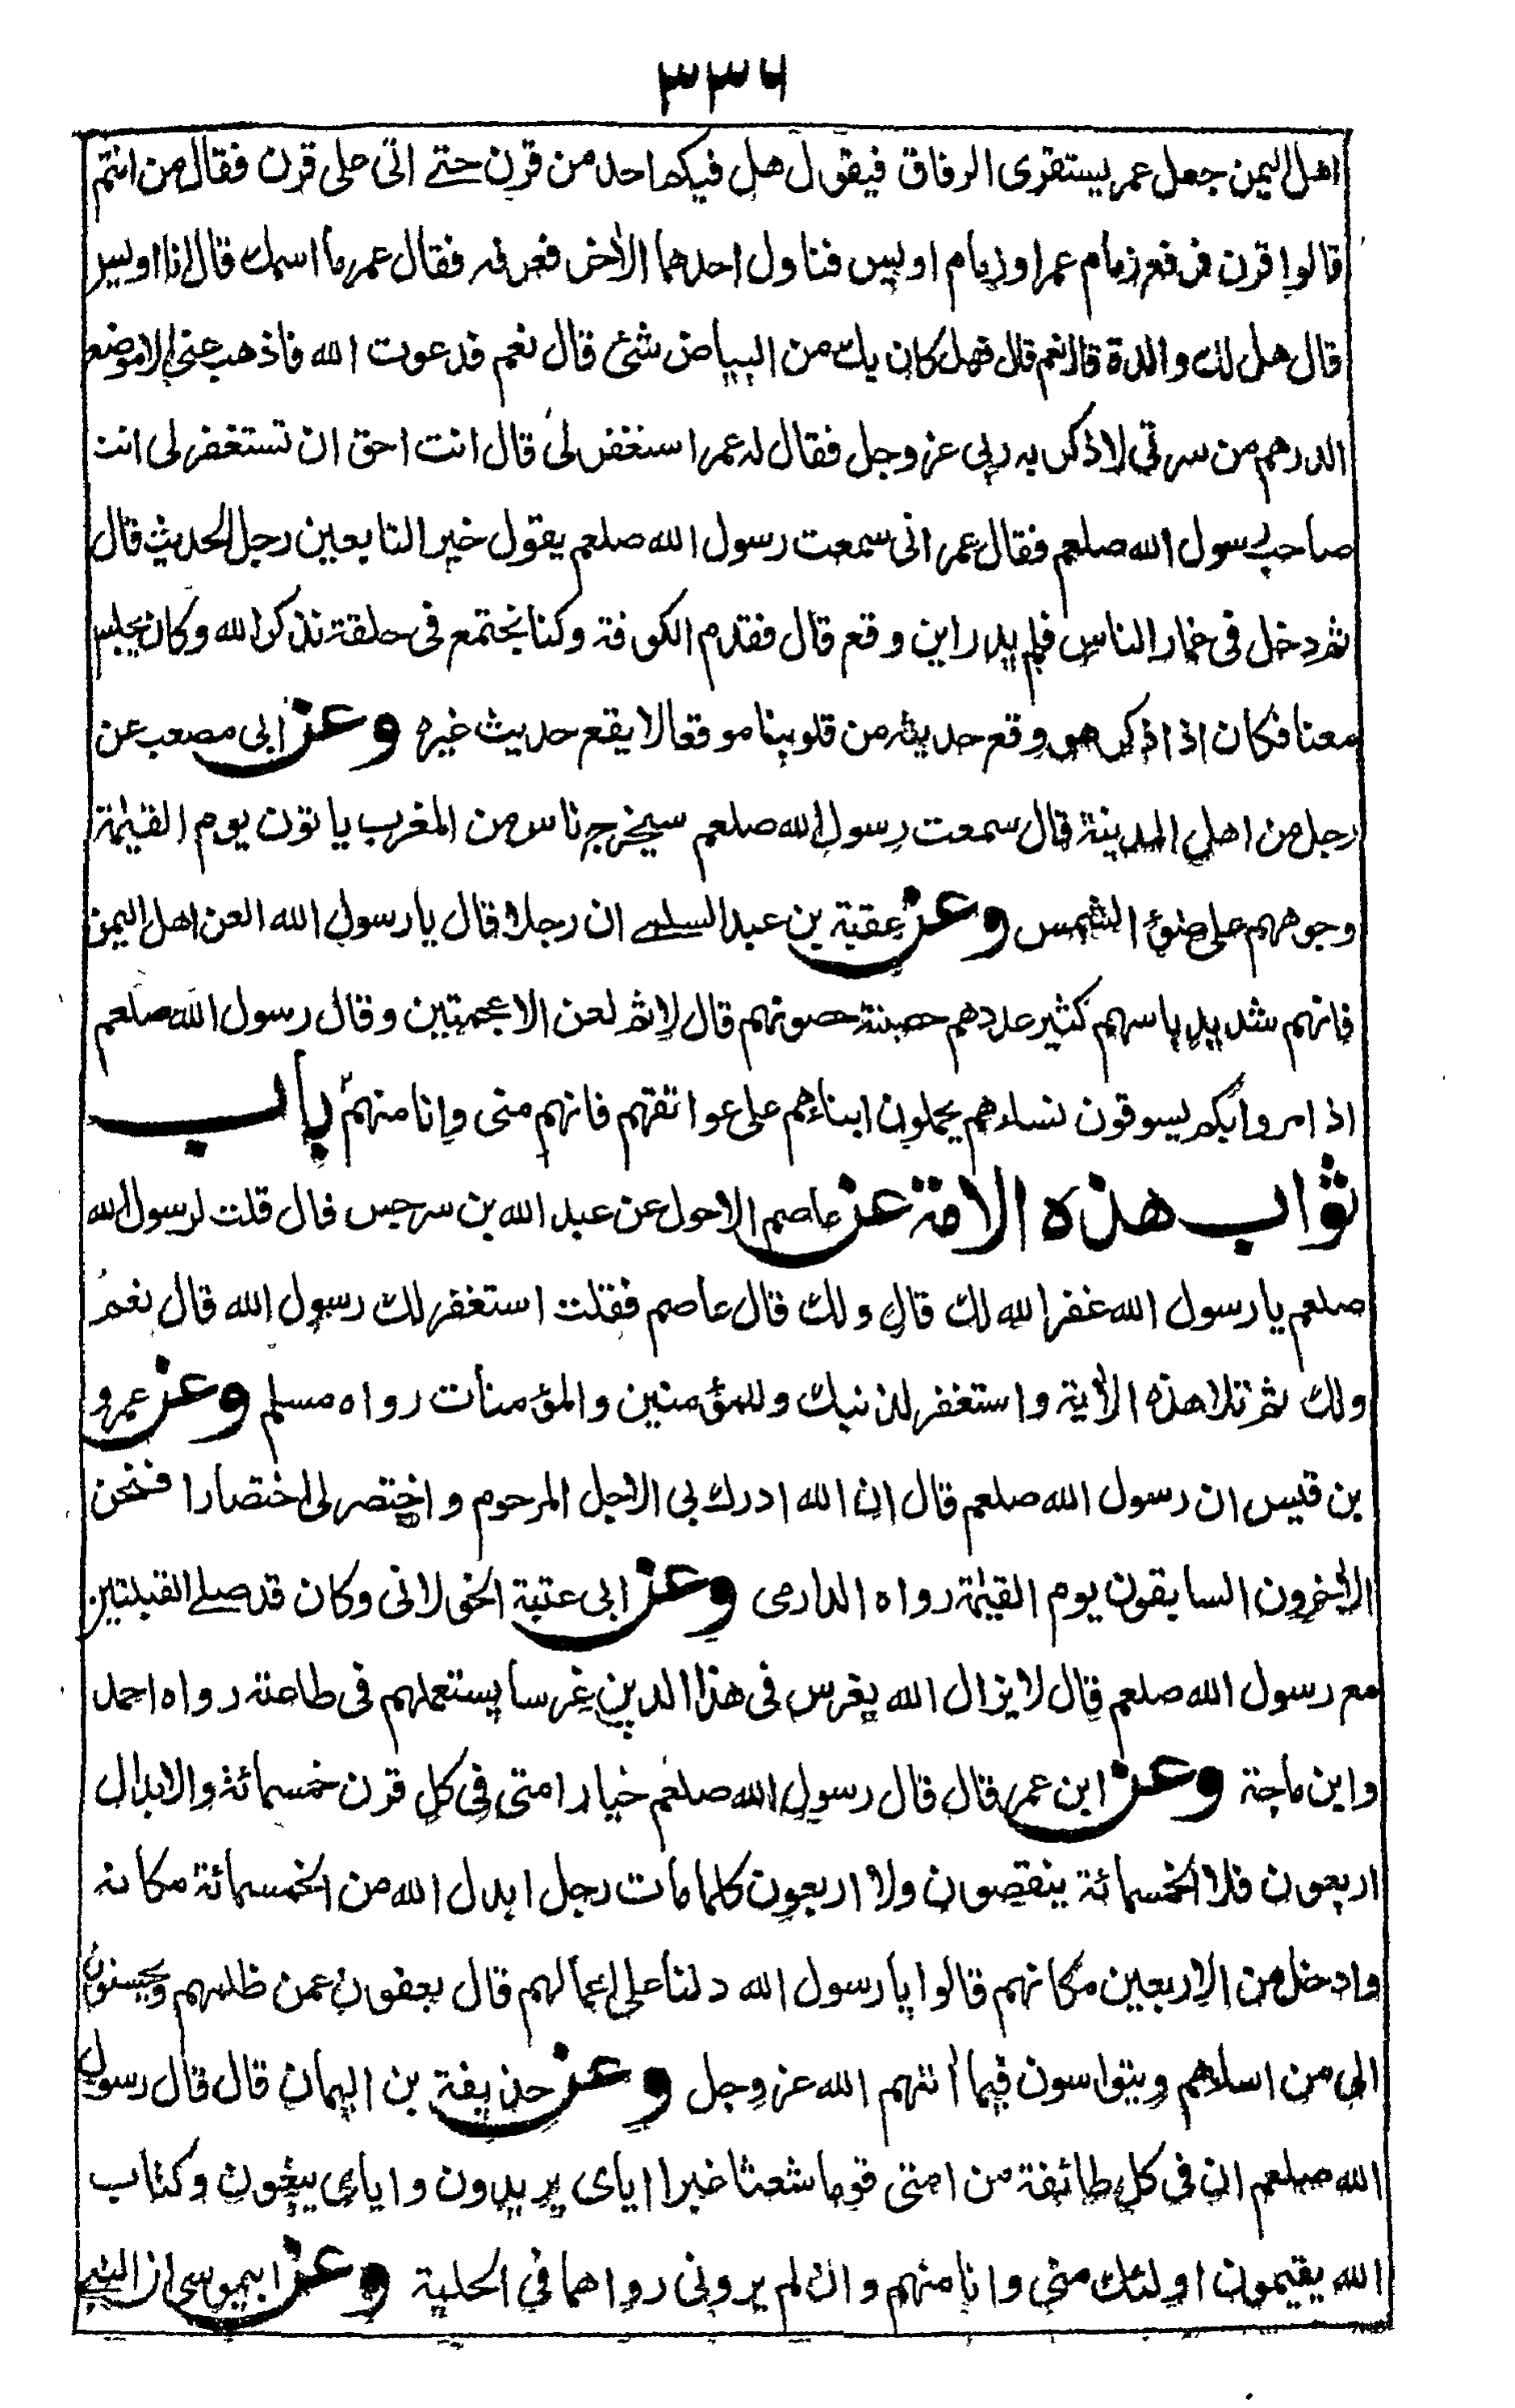 ٣٣٦
اهل اليمن جعل عمر يستقرى الرفاق فيقول هل فيكم احد من قرن حتے اتى على قرن فقال من انتم
قالوا قرن فرفع زمام عمر او زمام اويس فناول احدهما الاٰخر فعرفه فقال عمر ما اسمك قال انا اويس
قال هل لك والدة قال نعم قال فهل كان بك من البياض شئ قال نعم فدعوت الله فاذهب عنى الا موضع
الدرهم من سرتى لاذكر به ربى عز وجل فقال له عمر استغفر لى قال انت احق ان تستغفر لى انت
صاحب رسول الله صلعم فقال عمر انى سمعت رسول الله صلعم يقول خير التابعين رجل الحديث قال
ثم دخل فى غمار الناس فلم يدر اين وقع قال فقدم الكوفة وكنا نجتمع فى حلقة نذكر الله وكان يجلس
معنا فكان اذا ذكر هو وقع حديثه من قلوبنا موقعا لا يقع حديث غيره وعن ابى مصعب عن
رجل من اهل المدينة قال سمعت رسول الله صلعم سيخرج ناس من المغرب ياتون يوم القيٰمة
وجوههم على ضوء الشمس وعن عقبة بن عبد السلمے ان رجلا قال يا رسول الله العن اهل اليمن
فانهم شديد باسهم كثير عددهم حصينة حصونهم قال لا ثم لعن الاعجمتين وقال رسول الله صلعم
اذا مروا بكم يسوقون نساءهم يحملون ابناءهم على عواتقهم فانهم منى وانا منهم باب
ثواب هذه الامة عن عاصم الاحول عن عبد الله بن سرجس قال قلت لرسول الله
صلعم يا رسول الله غفر الله لك قال ولك قال عاصم فقلت استغفر لك رسول الله قال نعم
ولك ثم تلا هذه الاٰية واستغفر لذنبك وللمؤمنين والمؤمنات رواه مسلم وعن عمرو
بن قيس ان رسول الله صلعم قال ان الله ادرك بى الاجل المرحوم واختصر لى اختصارا فنحن
الاٰخرون السابقون يوم القيٰمة رواه الدارمى وعن ابى عتبة الخولانى وكان قد صلے القبلتين
مع رسول الله صلعم قال لا يزال الله يغرس فى هذا الدين غرسا يستعملهم فى طاعته رواه احمد
وابن ماجة وعن ابن عمر قال قال رسول الله صلعم خيار امتى فى كل قرن خمسمائة والابدال
اربعون فلا الخمسمائة ينقصون ولا اربعون كلما مات رجل ابدل الله من الخمسمائة مكانه
وادخل من الاربعين مكانهم قالوا يا رسول الله دلنا على اعمالهم قال يعفون عمن ظلمهم ويحسنون
الى من اساءهم ويتواسون فيما اٰتٰهم الله عز وجل وعن حذيفة بن اليمان قال قال رسول
الله صلعم ان فى كل طائفة من امتى قوما شعثا غبرا اياى يريدون واياى يبغون وكتاب
الله يقيمون اولئك منى وانا منهم وان لم يرونى رواهما فى الحلية وعن ابيموسى ان النبے